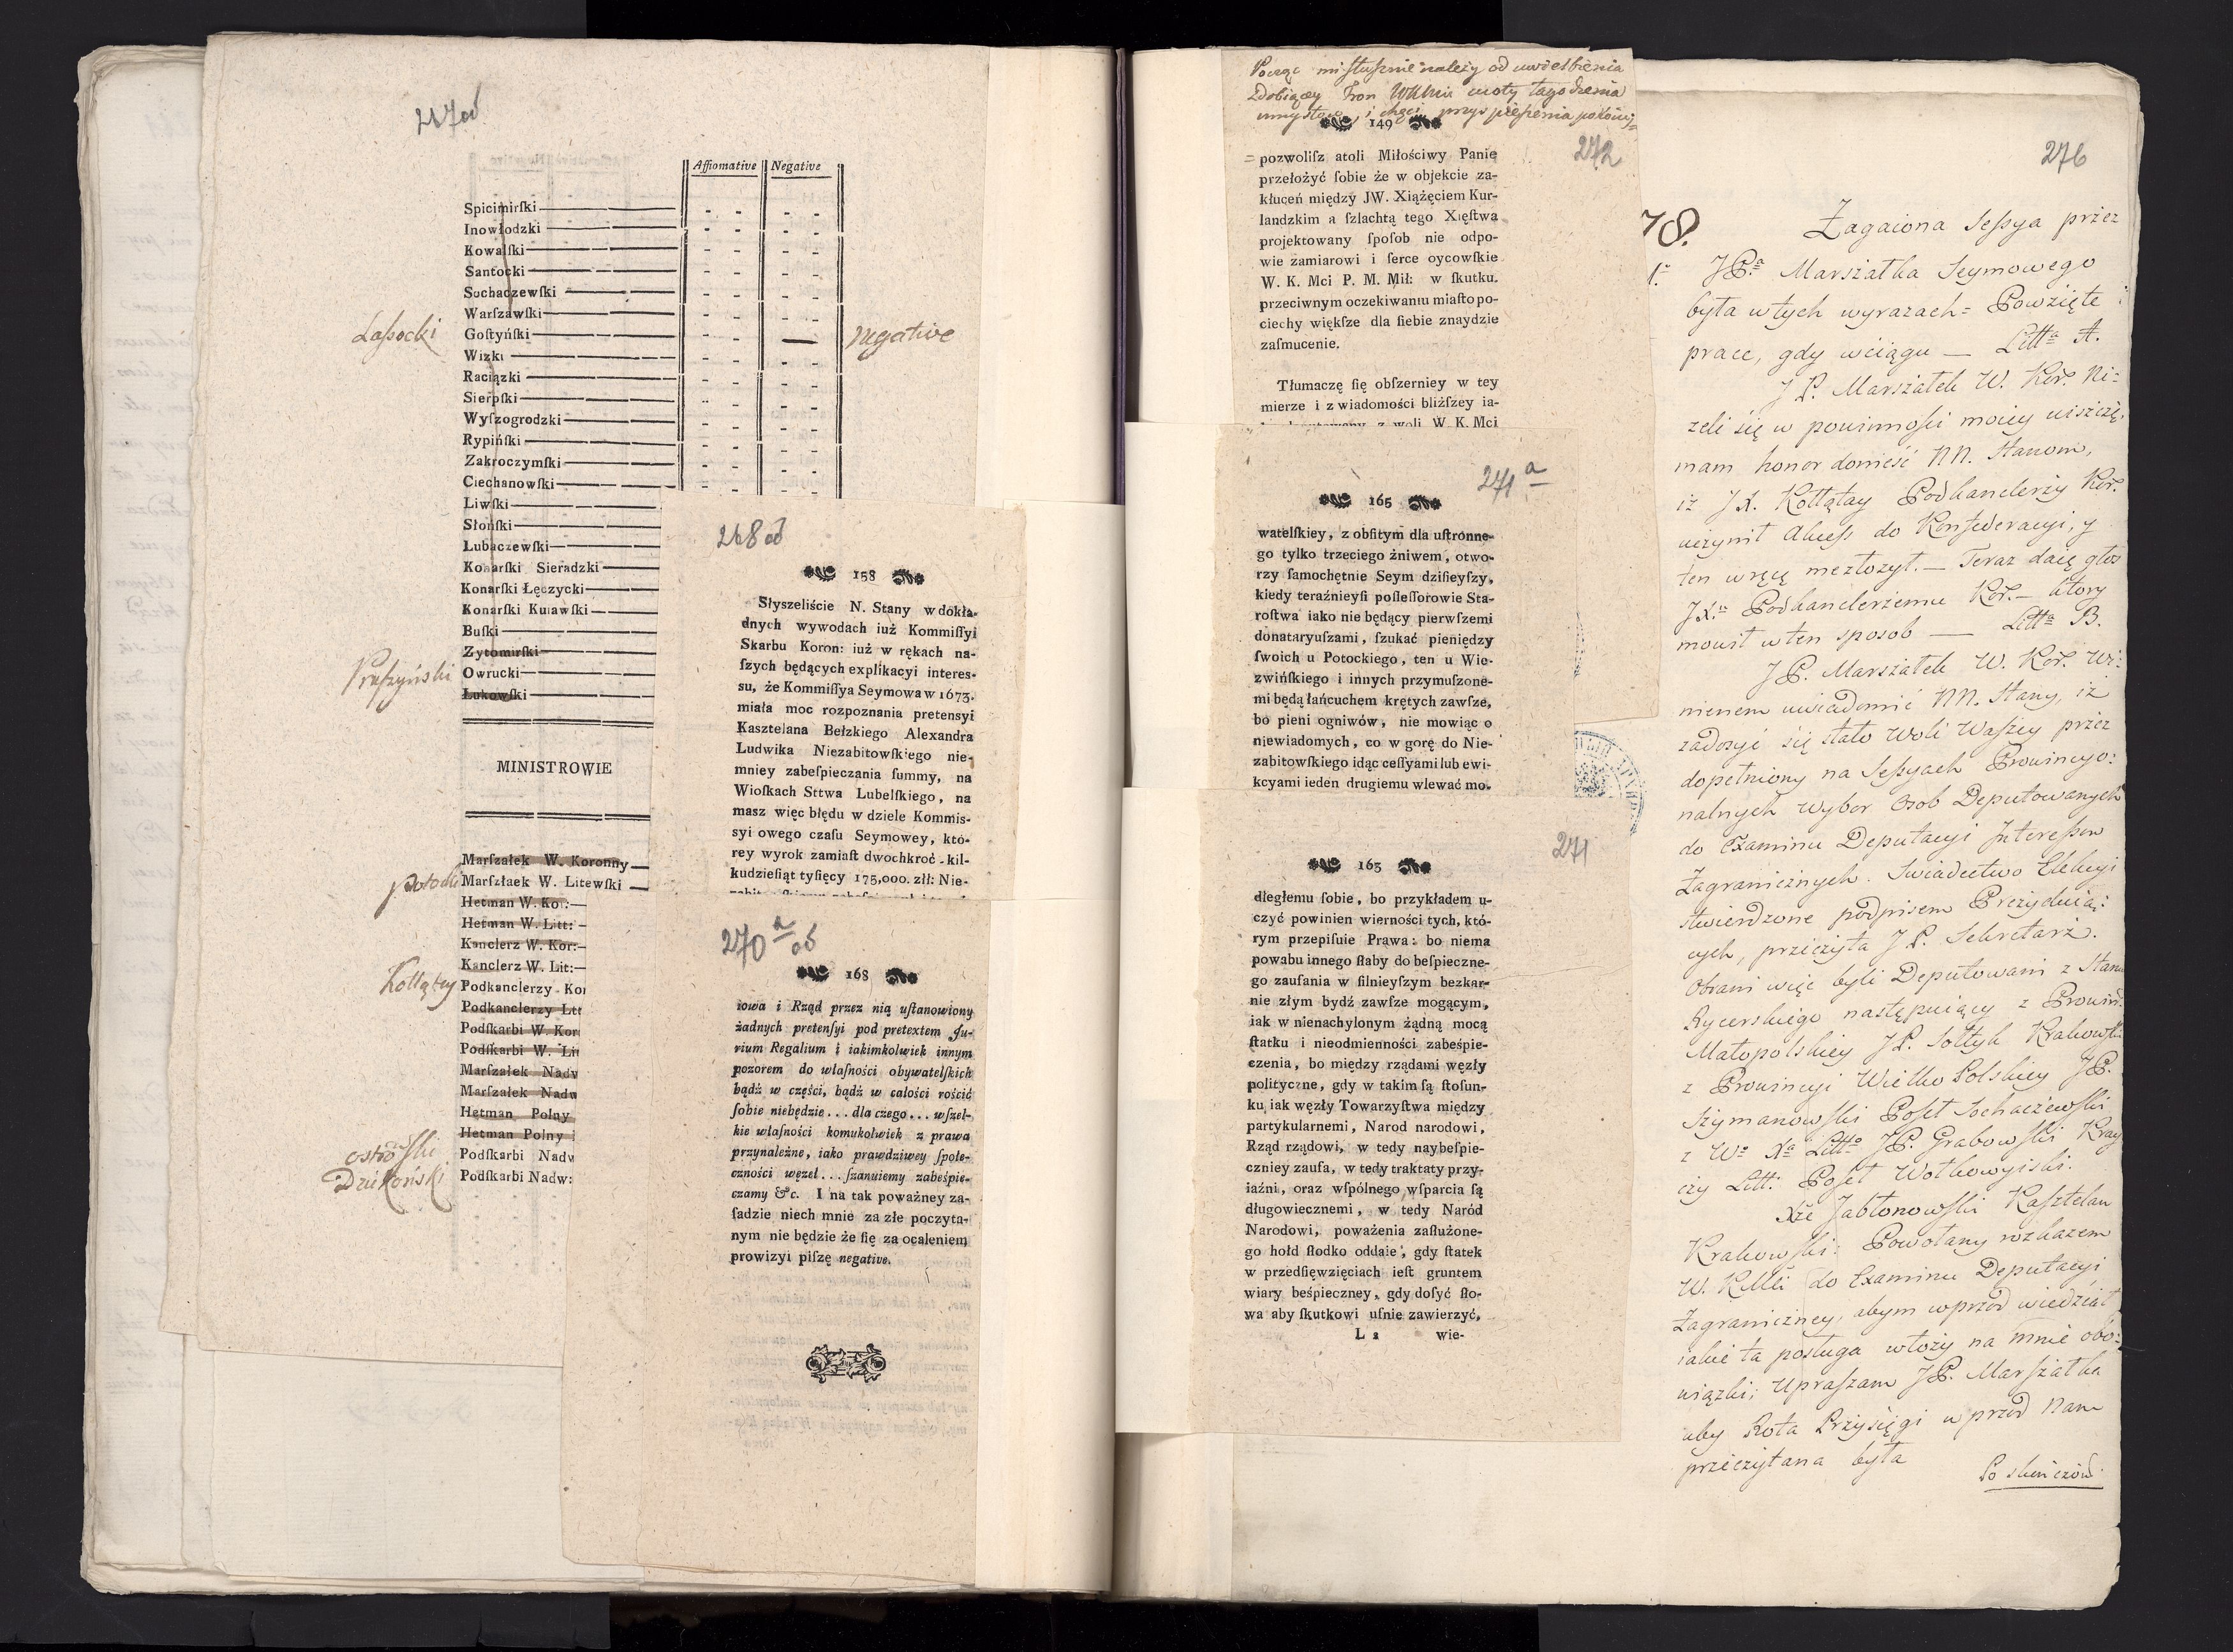 217 od
Affiomative Negative
Spicimirſki
Inowłodzki
Kowalſki
Santocki
Sochaczewſki
Warſzawſki
Łaſzocki Goſtyńſki negative
Wizki
Raciązki
Sierpſki
Wyſzogrodzki
Rypińſki
Zakroczymſki
Ciechanowſki
Liwſki
Słońſki
Lubaczewſki
Konarſki Sieradzki
Konarſki Łęczycki
Konarſki Kuiawſki
Buſki
Zytomirſki
Pruſzyński Owrucki
Łukowſki
MINISTROWIE
Marſzałek W. Koronny
Potocki Marſzłaek W. Litewſki
Hetman W. Ko :
Hetman W. Litt:
Kanclerz W. Kor:
Kanclerz W. Lit:
Kołłątay Podkanclerzy Ko
Podkanclerzy Litt
Podſkarbi W. Kor
Podſkarbi W. Lit
Marſzałek Nadw
Marſzałek Nadw
Hetman Polny
Hetman Polny
Podſkarbi Nadw
Dziekoński Podſkarbi Nadw:
268 od
158
Słyszeliście N. Stany w dokła-
dnych wywodach iuż Kommiſſyi
Skarbu Koron: iuż w rękach na-
ſzych będących explikacyi interes-
su, że Kommiſſya Seymowa w 1673.
miała moc rozpoznania pretensyi
Kasztelana Bełzkiego Alexandra
Ludwika Niezabitowſkiego nie-
mniey zabeſpieczania ſummy, na
Wioſkach Sttwa Lubelſkiego, na
masz więc błędu w dziele Kommis-
syi owego czaſu Seymowey, któ-
rey wyrok zamiaſt dwochkroć-kil-
kudzieſiąt tyſięcy 175,000. złł: Nie-
270 a od
168
iowa i Rząd przez nią uſtanowiony
żadnych pretenſyi pod pretextem Ju-
rium Regalium i iakimkolwiek innym
pozorem do właſności obywatelſkich
bądź w części, bądź w całości rościć
ſobie niebędzie... dla czego... wſzel-
kie właſności komukolwiek z prawa
przynależne, iako prawdziwey ſpołe-
czności węzeł... ſzanuiemy zabeśpie-
czamy &c. I na tak poważney za-
ſadzie niech mnie za złe poczyta-
nym nie będzie że ſię za ocaleniem
prowizyi piſzę negative.
Począć mi ſłuſznie należy od uwielbienia
zdobiącey Tron WKMci cnoty łagodzenia
149
272
= pozwoliſz atoli Miłościwy Panie
przełożyć ſobie że w objekcie za-
kłuceń między JW. Xiążęciem Kur-
landzkim a ſzlachtą tego Xięſtwa
projektowany ſpoſob nie odpo-
wie zamiarowi i ſerce oycowſkie
W. K. Mci P. M. Mił: w ſkutku.
przeciwnym oczekiwaniu miaſto po-
ciechy więkſze dla ſiebie znaydzie
zaſmucenie.
Tłumaczę ſię obſzerniey w tey
mierze i z wiadomości bliżſzey ia-
z woli W. K. Mci
271 a
165
watelſkiey, z obſitym dla uſtronne-
go tylko trzeciego żniwem, otwo-
rzy ſamochętnie Seym dziſieyſzy,
kiedy teraźnieyſi poſſeſſorowie Sta-
roſtwa iako nie będący pierwſzemi
donataryuſzami, ſzukać pieniędzy
ſwoich u Potockiego, ten u Wie-
zwińſkiego i innych przymuſzone-
mi będą łańcuchem krętych zawſze,
bo pieni ogniwów, nie mowiąc o
niewiadomych, co w gorę do Nie-
zabitowſkiego idąc ceſſyami lub ewi-
kcyami ieden drugiemu wlewać mo-
271
163
dległemu ſobie, bo przykładem u-
czyć powinien wierności tych, któ-
rym przepiſuie Prawa: bo niema
powabu innego ſłaby do beſpieczne-
go zaufania w ſilnieyſzym bezkar-
nie złym bydź zawſze mogącym,
iak w nienachylonym żądną mocą
ſtatku i nieodmienności zabeśpie-
czenia, bo między rządami węzły
polityczne, gdy w takim ſą ſtoſun-
ku iak węzły Towarzyſtwa między
partykularnemi, Narod narodowi,
Rząd rządowi, w tedy naybeſpie-
czniey zaufa, w tedy traktaty przy-
iaźni, oraz wſpólnego wſparcia ſą
długowiecznemi, w tedy Naród
Narodowi, poważenia zaſłużone-
go hołd ſłodko oddaie, gdy ſtatek
w przedſięwzięciach ieſt gruntem
wiary beśpieczney, gdy doſyć ſło-
wa aby ſkutkowi uſnie zawierzyć,
L 2 wie-
276
78. Zagaiona Seſsya przez
1. JP.a Marszałka Seymowego
była w tych wyrazach = Powzięte
prace, gdy wciągu — Litt. A.
JP. Marszałek W. Kor. Ni=
żeli się w powinności moiey uiszczę,
mam honor donieść NN. Stanom,
iż JX. Kołłątay Podkanclerzy Kor.
uczynił Akceſs do Konfederacyi, y
ten w ręce me złożył. — Teraz daię głos
JX. Podkanclerzemu Kor. — ktory
mowił w ten sposob — Litt. B.
JP. Marszałek W. Kor. Wi=
nienem uwiadomić NN. Stany, iż
zadosyć się stało Woli Waszey przez
dopełniony na Seſsyach Prowincyo:
nalnych Wybor Osob Deputowanych
do Examinu Deputacyi Intereſsow
Zagranicznych. Swiadectwo Elekcyi
stwierdzone podpisem Prezyduią:
cych, przeczyta JP. Sekretarz.
Obrani więc byli Deputowani z Stanu
Rycerskiego następuiący z Prowin.
Małopolskiey JP. Sołtyk Krakowski
z Prowincyi Wielko Polskiey JP.
Szymanowſki Poseł Sochaczewſki
z W. Xa Litt. JP. Grabowſki Kray
czy Litt: Poseł Wołkowyiski.
Xże Jabłonowſki Kaſztelan
Krakowſki: Powołany rozkazem
W. KMci do Examinu Deputacyi
Zagraniczney, abym wprzod wiedział
iakie ta posługa włoży na mnie obo:
wiązki; Upraſzam JP. Marſzałka
aby Rota Przysięgi wprzod Nam
przeczytana była
Po skończon: